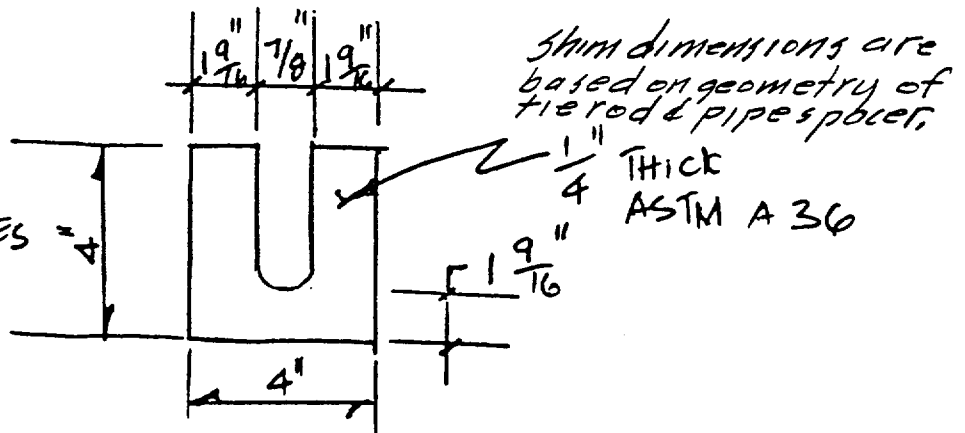 1 9/16" 7/8" 1 9/16"
Shim dimensions are
based on geometry of
tie rod & pipe spacer.
1/4" THICK
ASTM A 36
ES
4"
1 9/16"
4"